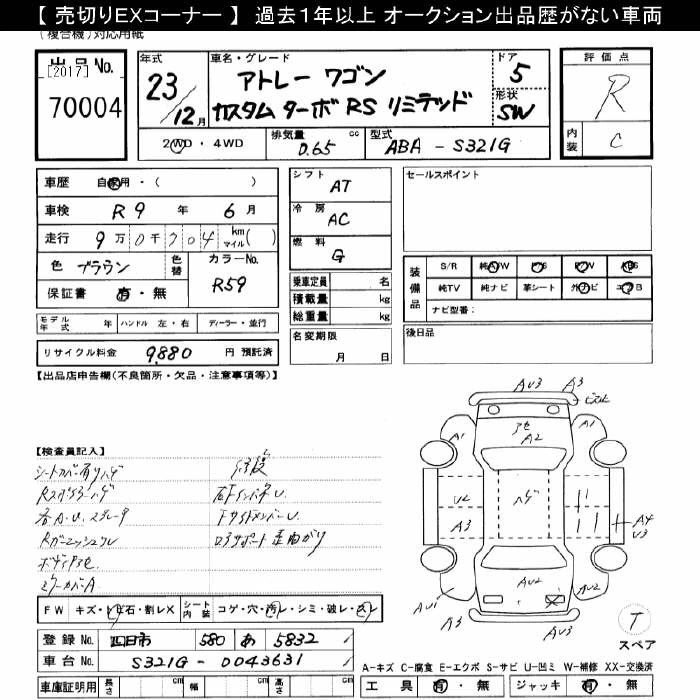 【 売切りEXコーナー 】 過去1年以上 オークション出品歴がない車両
(複合機)対応用紙
出品 No.
[2017]
70004
年式
23/12月
車名・グレード
アトレー ワゴン
カスタム ターボ RS リミテッド
ドア
5
形状
SW
2WD・4WD
排気量
0.65
cc
型式
ABA - S321G
評価点
R
内装
C
車歴
自家用・( )
車検
R9 年 6月
走行
9万0千704 km マイル( )
色
ブラウン
色替
カラーNo.
R59
保証書
有・無
シフト
AT
冷房
AC
燃料
G
乗車定員
名
積載量
kg
総重量
kg
名変期限
月 日
セールスポイント
装備品
S/R 純A/W P/S P/W ABS
純TV 純ナビ 革シート 外ナビ エアB
ナビ型番:
後日品
モデル年式 年 ハンドル 左・右 ディーラー・並行
リサイクル料金 9880 円 預託済
【出品店申告欄(不良箇所・欠品・注意事項等)】
【検査員記入】
シートカバー有りハゲ
各A.U.スレキズ
ボディアセ
ミラーカバーA
修復
右Fインパネ U.
FサイドメンバーU
ロアサポート 歪曲がり
FW
キズ・ヒ・石・割レX
シート内装
コゲ・穴・汚レ・シミ・破レ・スレ
登録 No.
四日市 580 あ 5832
車台 No.
S321G - 0043631
車庫証明用
長さ
cm
幅
cm
高さ
cm
AU3
A3
A1
アセ
A2
A1
U2
A3
ハゲ
A4
U3
AU2
AU1
A3
AU2
AU3
T
スペア
A-キズ C-腐食 E-エクボ S-サビ U-凹ミ W-補修 XX-交換済
工具
有・無
ジャッキ
有・無